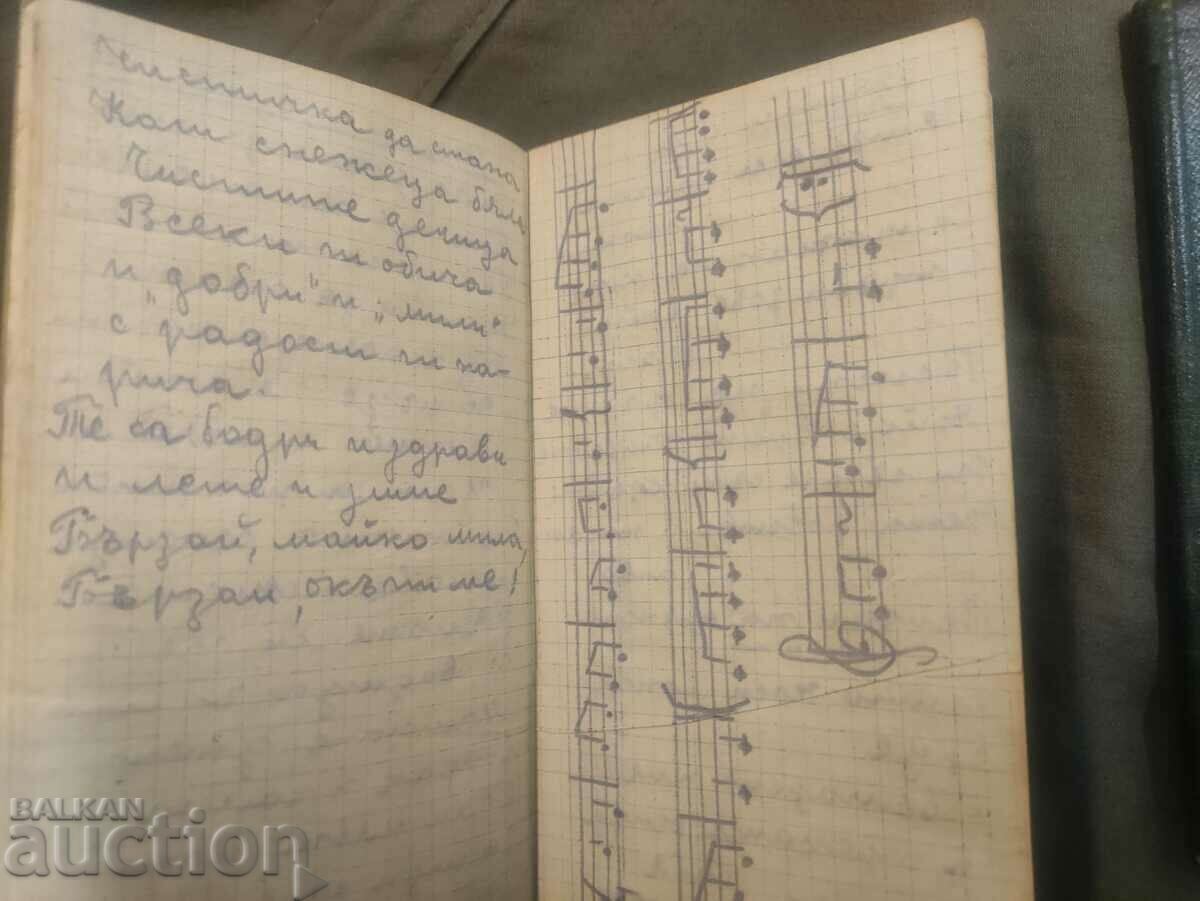 чистичка да стана
Като снежеца бяла
Чистите деница
Всеки ги обича
и „добри“ и „мили“
с радост ги на-
рича.
Те са бодри и здрави
и лете и зиме
Бързай, майко мила,
Бързай, окъпи ме!
BALKAN
auction